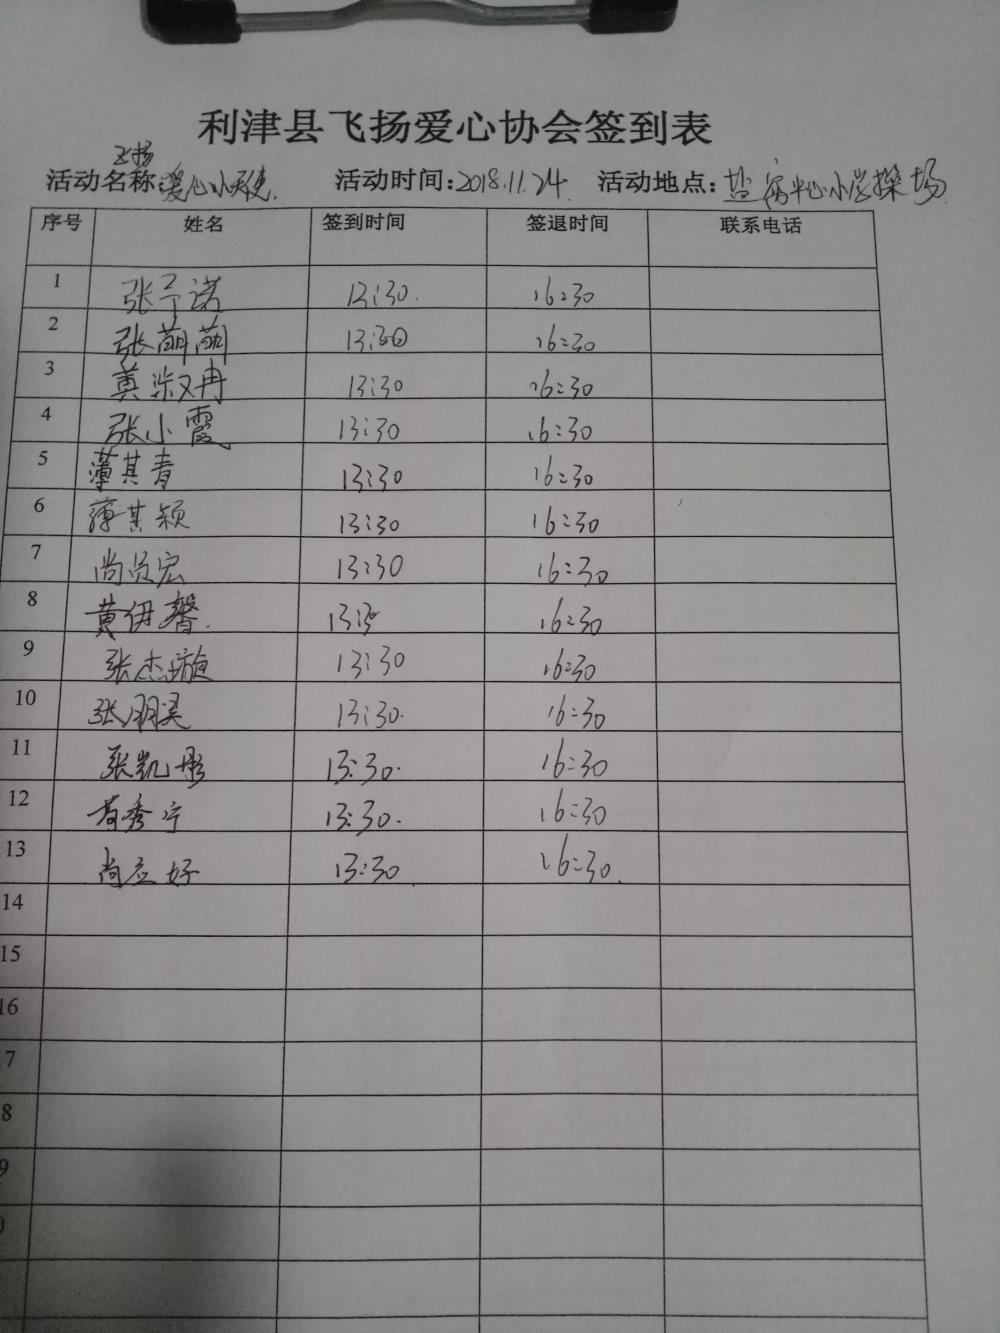 利津县飞扬爱心协会签到表
飞扬
活动名称:爱心小天使 活动时间:2018.11.24 活动地点:盐窝中心小学操场
序号 姓名 签到时间 签退时间 联系电话
1 张予诺 13:30 16:30
2 张萌萌 13:30 16:30
3 冉 13:30 16:30
4 张小霞 13:30 16:30
5 薄其青 13:30 16:30
6 薄其颖 13:30 16:30
7 尚贤宏 13:30 16:30
8 黄伊馨 16:30
9 张杰璇 13:30 16:30
10 张朋昊 13:30 16:30
11 张凯彤 13:30 16:30
12 秀宁 13:30 16:30
13 尚应好 13:30 16:30
14
15
16
7
8
9